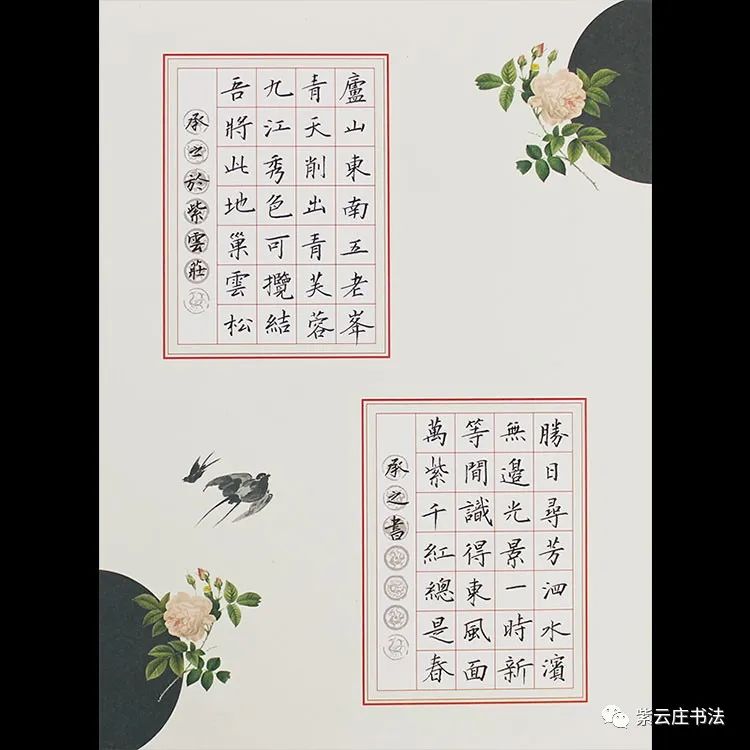 廬山東南五老峯
青天削出青芙蓉
九江秀色可攬結
吾將此地巢雲松
承之於紫雲莊
勝日尋芳泗水濱
無邊光景一時新
等閒識得東風面
萬紫千紅總是春
承之書
紫云庄书法